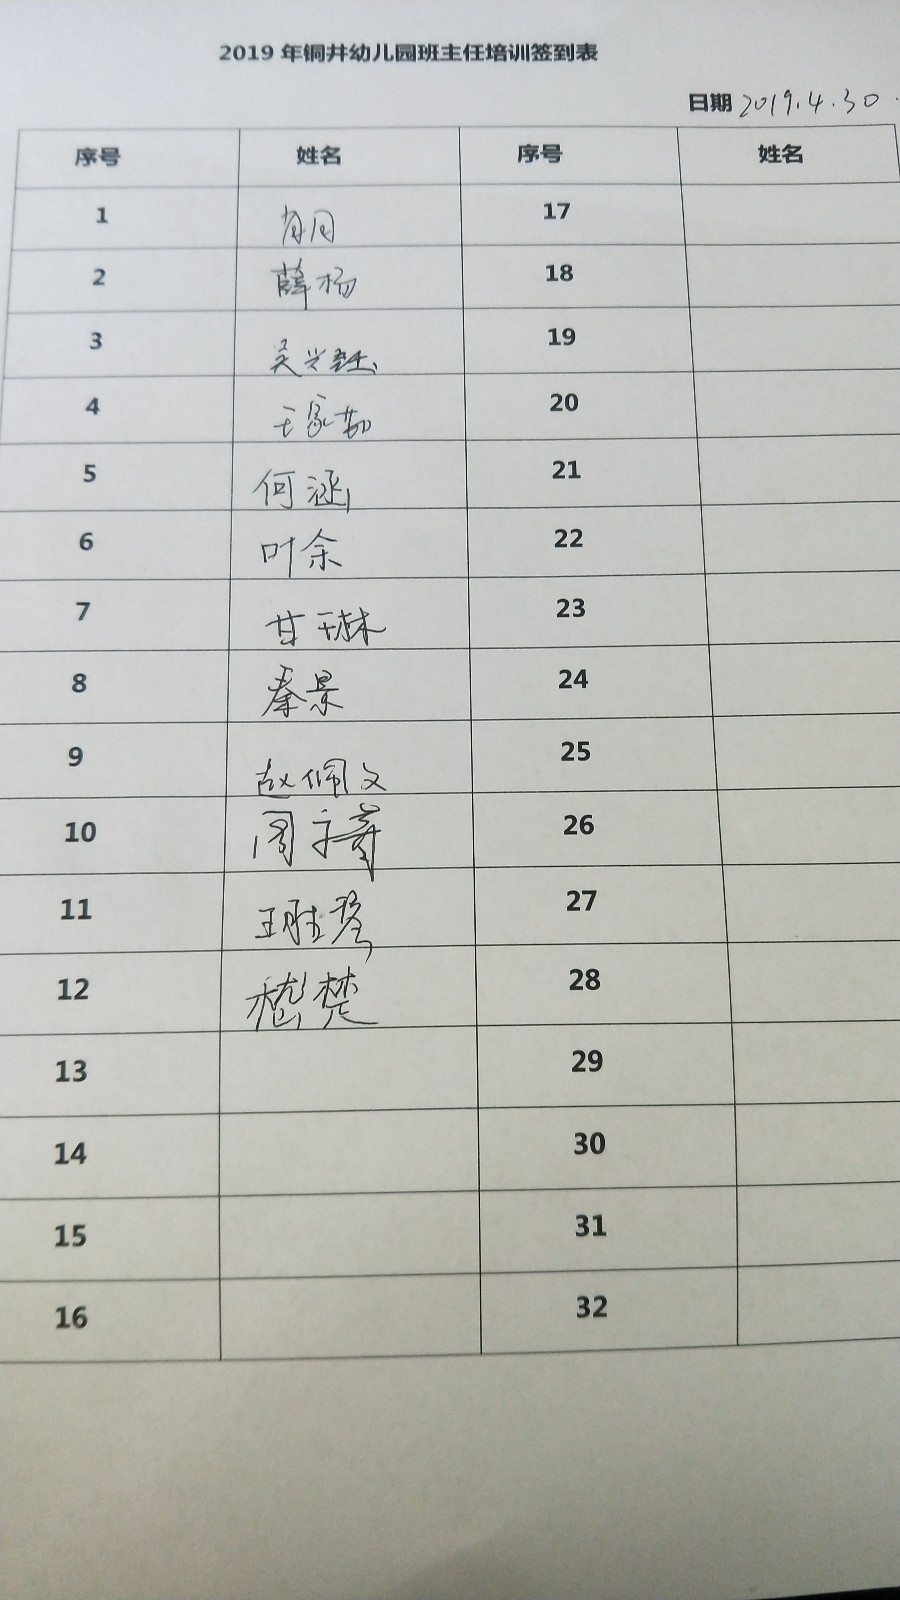 2019 年铜井幼儿园班主任培训签到表
日期 2019.4.30.
序号 姓名 序号 姓名
1 17
2 薛杨 18
3 吴兴 19
4 王家 20
5 何涵 21
6 叶余 22
7 甘琳 23
8 秦景 24
9 赵佩文 25
10 周 26
11 王胜 27
12 嵇楚 28
13 29
14 30
15 31
16 32